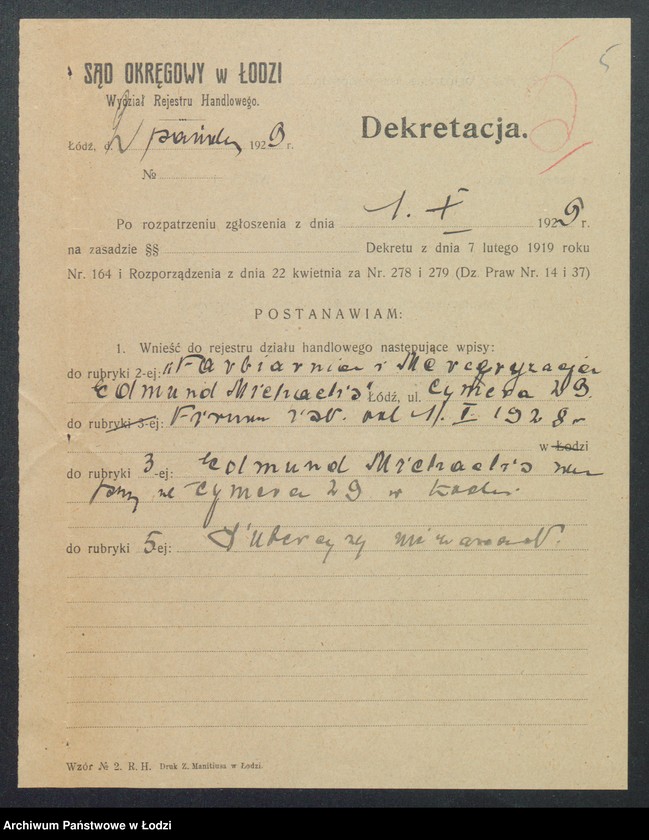 5
SĄD OKRĘGOWY w ŁODZI
Wydział Rejestru Handlowego.
Dekretacja.
Łódź, d. 2 paźdz. 1929 r.
№
Po rozpatrzeniu zgłoszenia z dnia 1. X 1929 r.
na zasadzie §§ Dekretu z dnia 7 lutego 1919 roku
Nr. 164 i Rozporządzenia z dnia 22 kwietnia za Nr. 278 i 279 (Dz. Praw Nr. 14 i 37)
POSTANAWIAM:
1. Wnieść do rejestru działu handlowego następujące wpisy:
do rubryki 2-ej: "Farbiarnia i Merceryzacja
Edmund Michaelis" Łódź, ul. Cymera 29.
do rubryki 3-ej: Firma istn. od 1. I 1928 r
w Łodzi
do rubryki 3-ej: Edmund Michaelis
Cymera 29 w Łodzi.
do rubryki 5-ej: Intercyzy nie zawarł.
Wzór № 2. R. H. Druk Z. Manitiusa w Łodzi.
Archiwum Państwowe w Łodzi